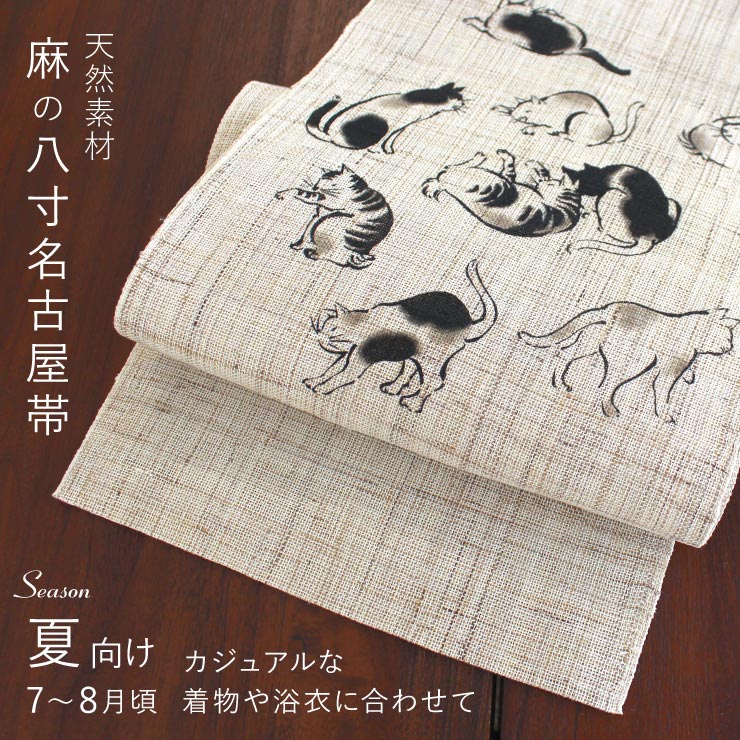 天然素材
麻の八寸名古屋帯
Season
夏向け
7～8月頃
カジュアルな
着物や浴衣に合わせて